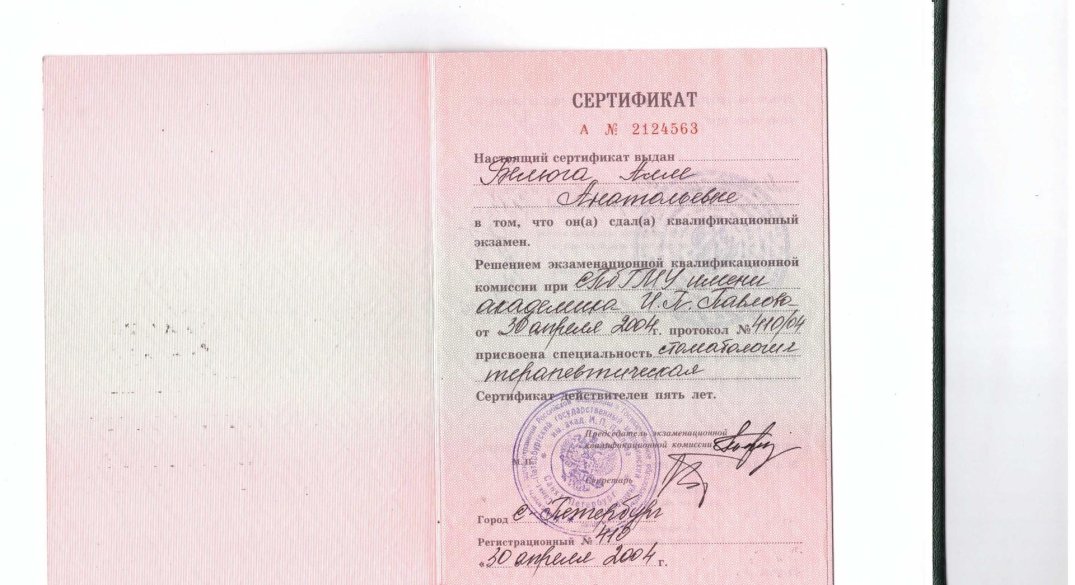 СЕРТИФИКАТ
А № 2124563
Настоящий сертификат выдан
Белюга Алле
Анатольевне
в том, что он(а) сдал(а) квалификационный
экзамен.
Решением экзаменационной квалификационной
комиссии при СПбГМУ имени
академика И.П. Павлова
от «30 апреля 2004 г. протокол № 410/04
присвоена специальность стоматология
терапевтическая
Сертификат действителен пять лет.
Председатель экзаменационной
квалификационной комиссии
М. П.
Секретарь
Город С-Петербург
Регистрационный № 410
«30 апреля 2004 г.